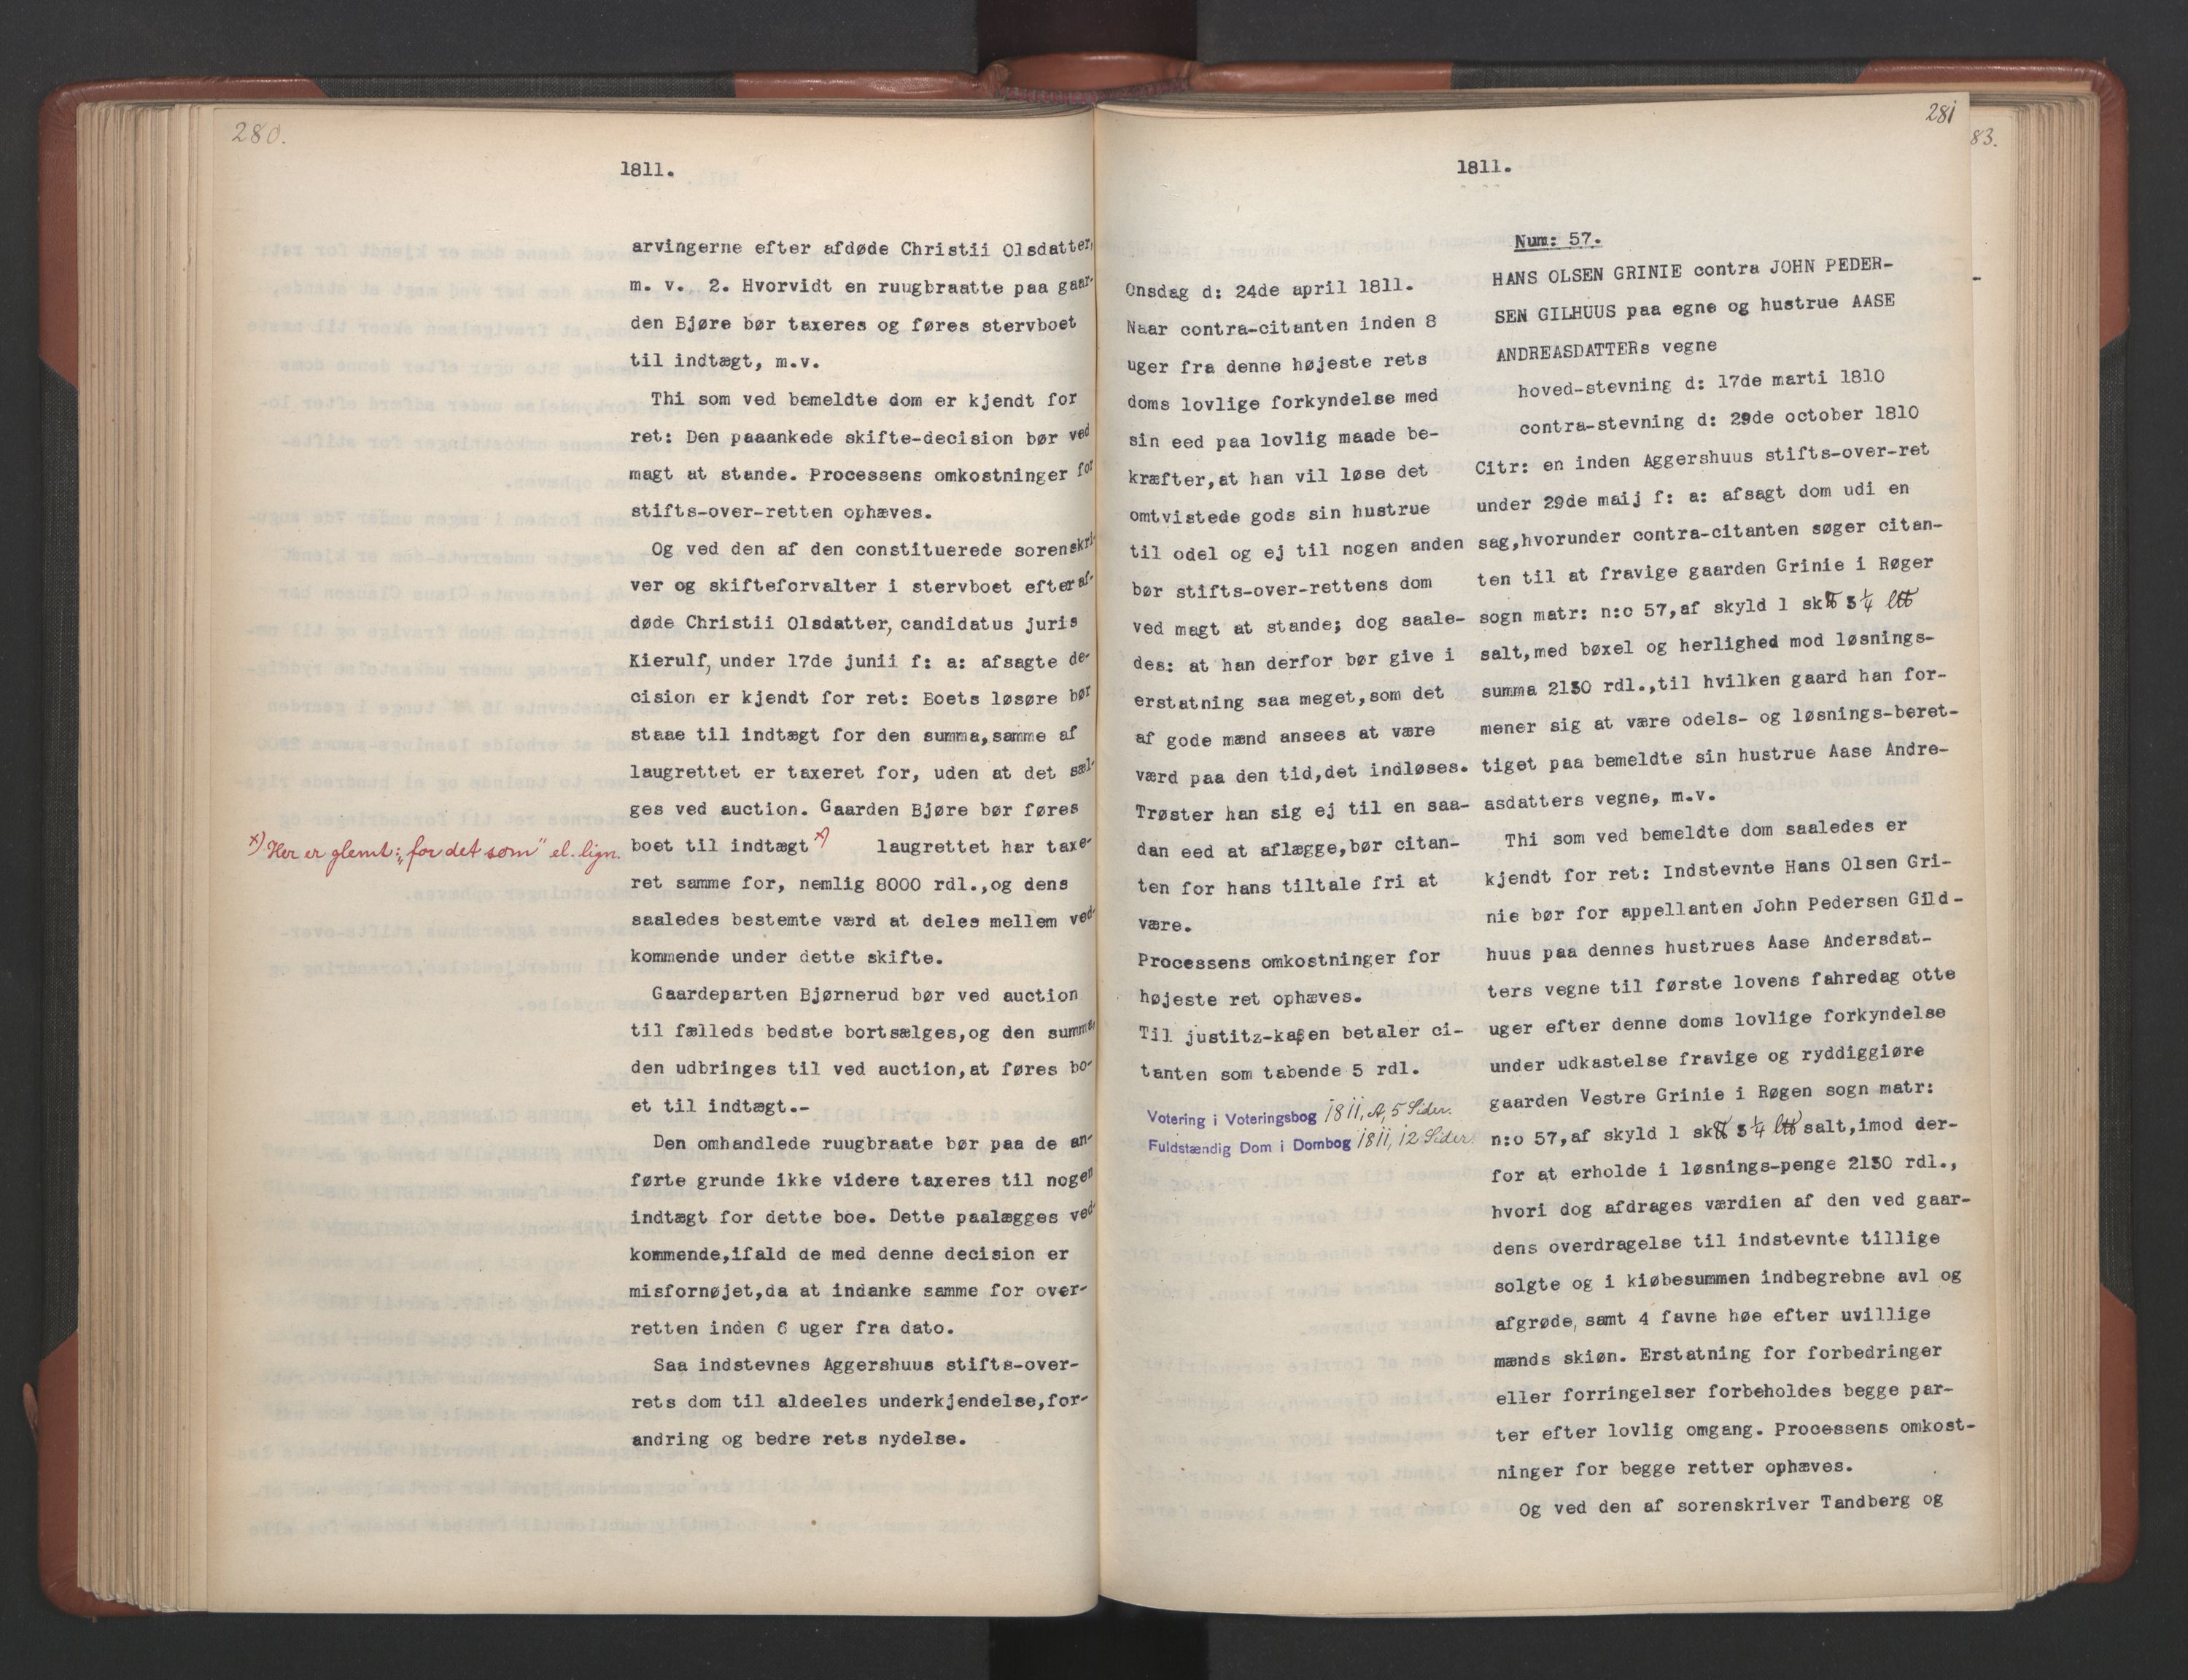 280.
1811.
arvingerne efter afdøde Christii Olsdatter,
m. v.  2. Hvorvidt en ruugbraatte paa gaar-
den Bjøre bør taxeres og føres stervboet
til indtægt, m.v.
Thi som ved bemeldte dom er kjendt for
ret: Den paaankede skifte-decision bør ved
magt at stande. Processens omkostninger for
stifts-over-retten ophæves.
Og ved den af den constituerede sorenskri-
ver og skifteforvalter i stervboet efter af-
døde Christii Olsdatter, candidatus juris
Kierulf, under 17de junii f: a: afsagte de-
cision er kjendt for ret: Boets løsøre bør
staae til indtægt for den summa,samme af
laugrettet er taxeret for, uden at det sæl-
ges ved auction. Gaarden Bjøre bør føres
x) Her er glemt: „for det som" el. lign.
boet til indtægt x) laugrettet har taxe-
ret samme for, nemlig 8000 rdl.,og dens
saaledes bestemte værd at deles mellem ved-
kommende under dette skifte.
Gaardeparten Bjørnerud bør ved auction
til fælleds bedste bortsælges,og den summa,
den udbringes til ved auction,at føres bo-
et til indtægt.-
Den omhandlede ruugbraate bør paa de an-
førte grunde ikke videre taxeres til nogen
indtægt for dette boe. Dette paalægges ved-
kommende,ifald de med denne decision er
misfornøjet,da at indanke samme for over-
retten inden 6 uger fra dato.
Saa indstevnes Aggershuus stifts-over-
rets dom til aldeeles underkjendelse,for-
andring og bedre rets nydelse.
281
83.
1811.
Onsdag d: 24de april 1811.
Naar contra-citanten inden 8
uger fra denne højeste rets
doms lovlige forkyndelse med
sin eed paa lovlig maade be-
kræfter,at han vil løse det
omtvistede gods sin hustrue
til odel og ej til nogen anden
bør stifts-over-rettens dom
ved magt at stande; dog saale-
des: at han derfor bør give i
erstatning saa meget,som det
af gode mænd ansees at være
værd paa den tid,det indløses.
Trøster han sig ej til en saa-
dan eed at aflægge,bør citan-
ten for hans tiltale fri at
være.
Processens omkostninger for
højeste ret ophæves.
Til justitz-kaßen betaler ci-
tanten som tabende 5 rdl.
Votering i Voteringsbog 1811, A, 5 Sider.
Fuldstændig Dom i Dombog 1811, 12 Sider.
Num: 57.
HANS OLSEN GRINIE contra JOHN PEDER-
SEN GILHUUS paa egne og hustrue AASE
ANDREASDATTERs vegne
hoved-stevning d: 17de marti 1810
contra-stevning d: 29de october 1810
Citr: en inden Aggershuus stifts-over-ret
under 29de maij f: a: afsagt dom udi en
sag,hvorunder contra-citanten søger citan-
ten til at fravige gaarden Grinie i Røger
sogn matr: n:o 57,af skyld 1 sk℔ 3¼ l℔
salt,med bøxel og herlighed mod løsnings-
summa 2130 rdl.,til hvilken gaard han for-
mener sig at være odels- og løsnings-beret-
tiget paa bemeldte sin hustrue Aase Andre-
asdatters vegne, m.v.
Thi som ved bemeldte dom saaledes er
kjendt for ret: Indstevnte Hans Olsen Gri-
nie bør for appellanten John Pedersen Gild-
huus paa dennes hustrues Aase Andersdat-
ters vegne til første lovens fahredag otte
uger efter denne doms lovlige forkyndelse
under udkastelse fravige og ryddiggiøre
gaarden Vestre Grinie i Røgen sogn matr:
n:o 57,af skyld 1 sk℔ 3¼ l℔ salt,imod der-
for at erholde i løsnings-penge 2130 rdl.,
hvori dog afdrages værdien af den ved gaar-
dens overdragelse til indstevnte tillige
solgte og i kiøbesummen indbegrebne avl og
afgrøde, samt 4 favne høe efter uvillige
mænds skiøn. Erstatning for forbedringer
eller forringelser forbeholdes begge par-
ter efter lovlig omgang. Processens omkost-
ninger for begge retter ophæves.
Og ved den af sorenskriver Tandberg og